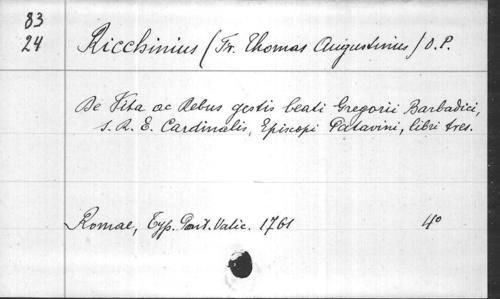 83
24
Ricchinius (Fr. Thomas Augustinus) O.P.
De Vita ac Rebus gestis beati Gregorii Barbadici,
S. R. E. Cardinalis, Episcopi Patavini, libri tres.
Romae, Typ. Pont. Vatic. 1761 4º